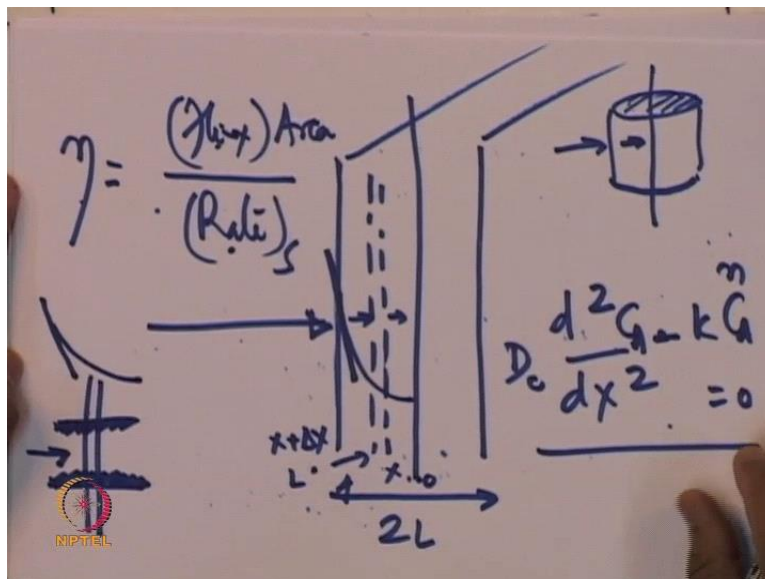 η = (Flux) Area
(Rate)s
De d²CA/dx² - k CAⁿ
= 0
x+Δx
L
x
0
2L
NPTEL